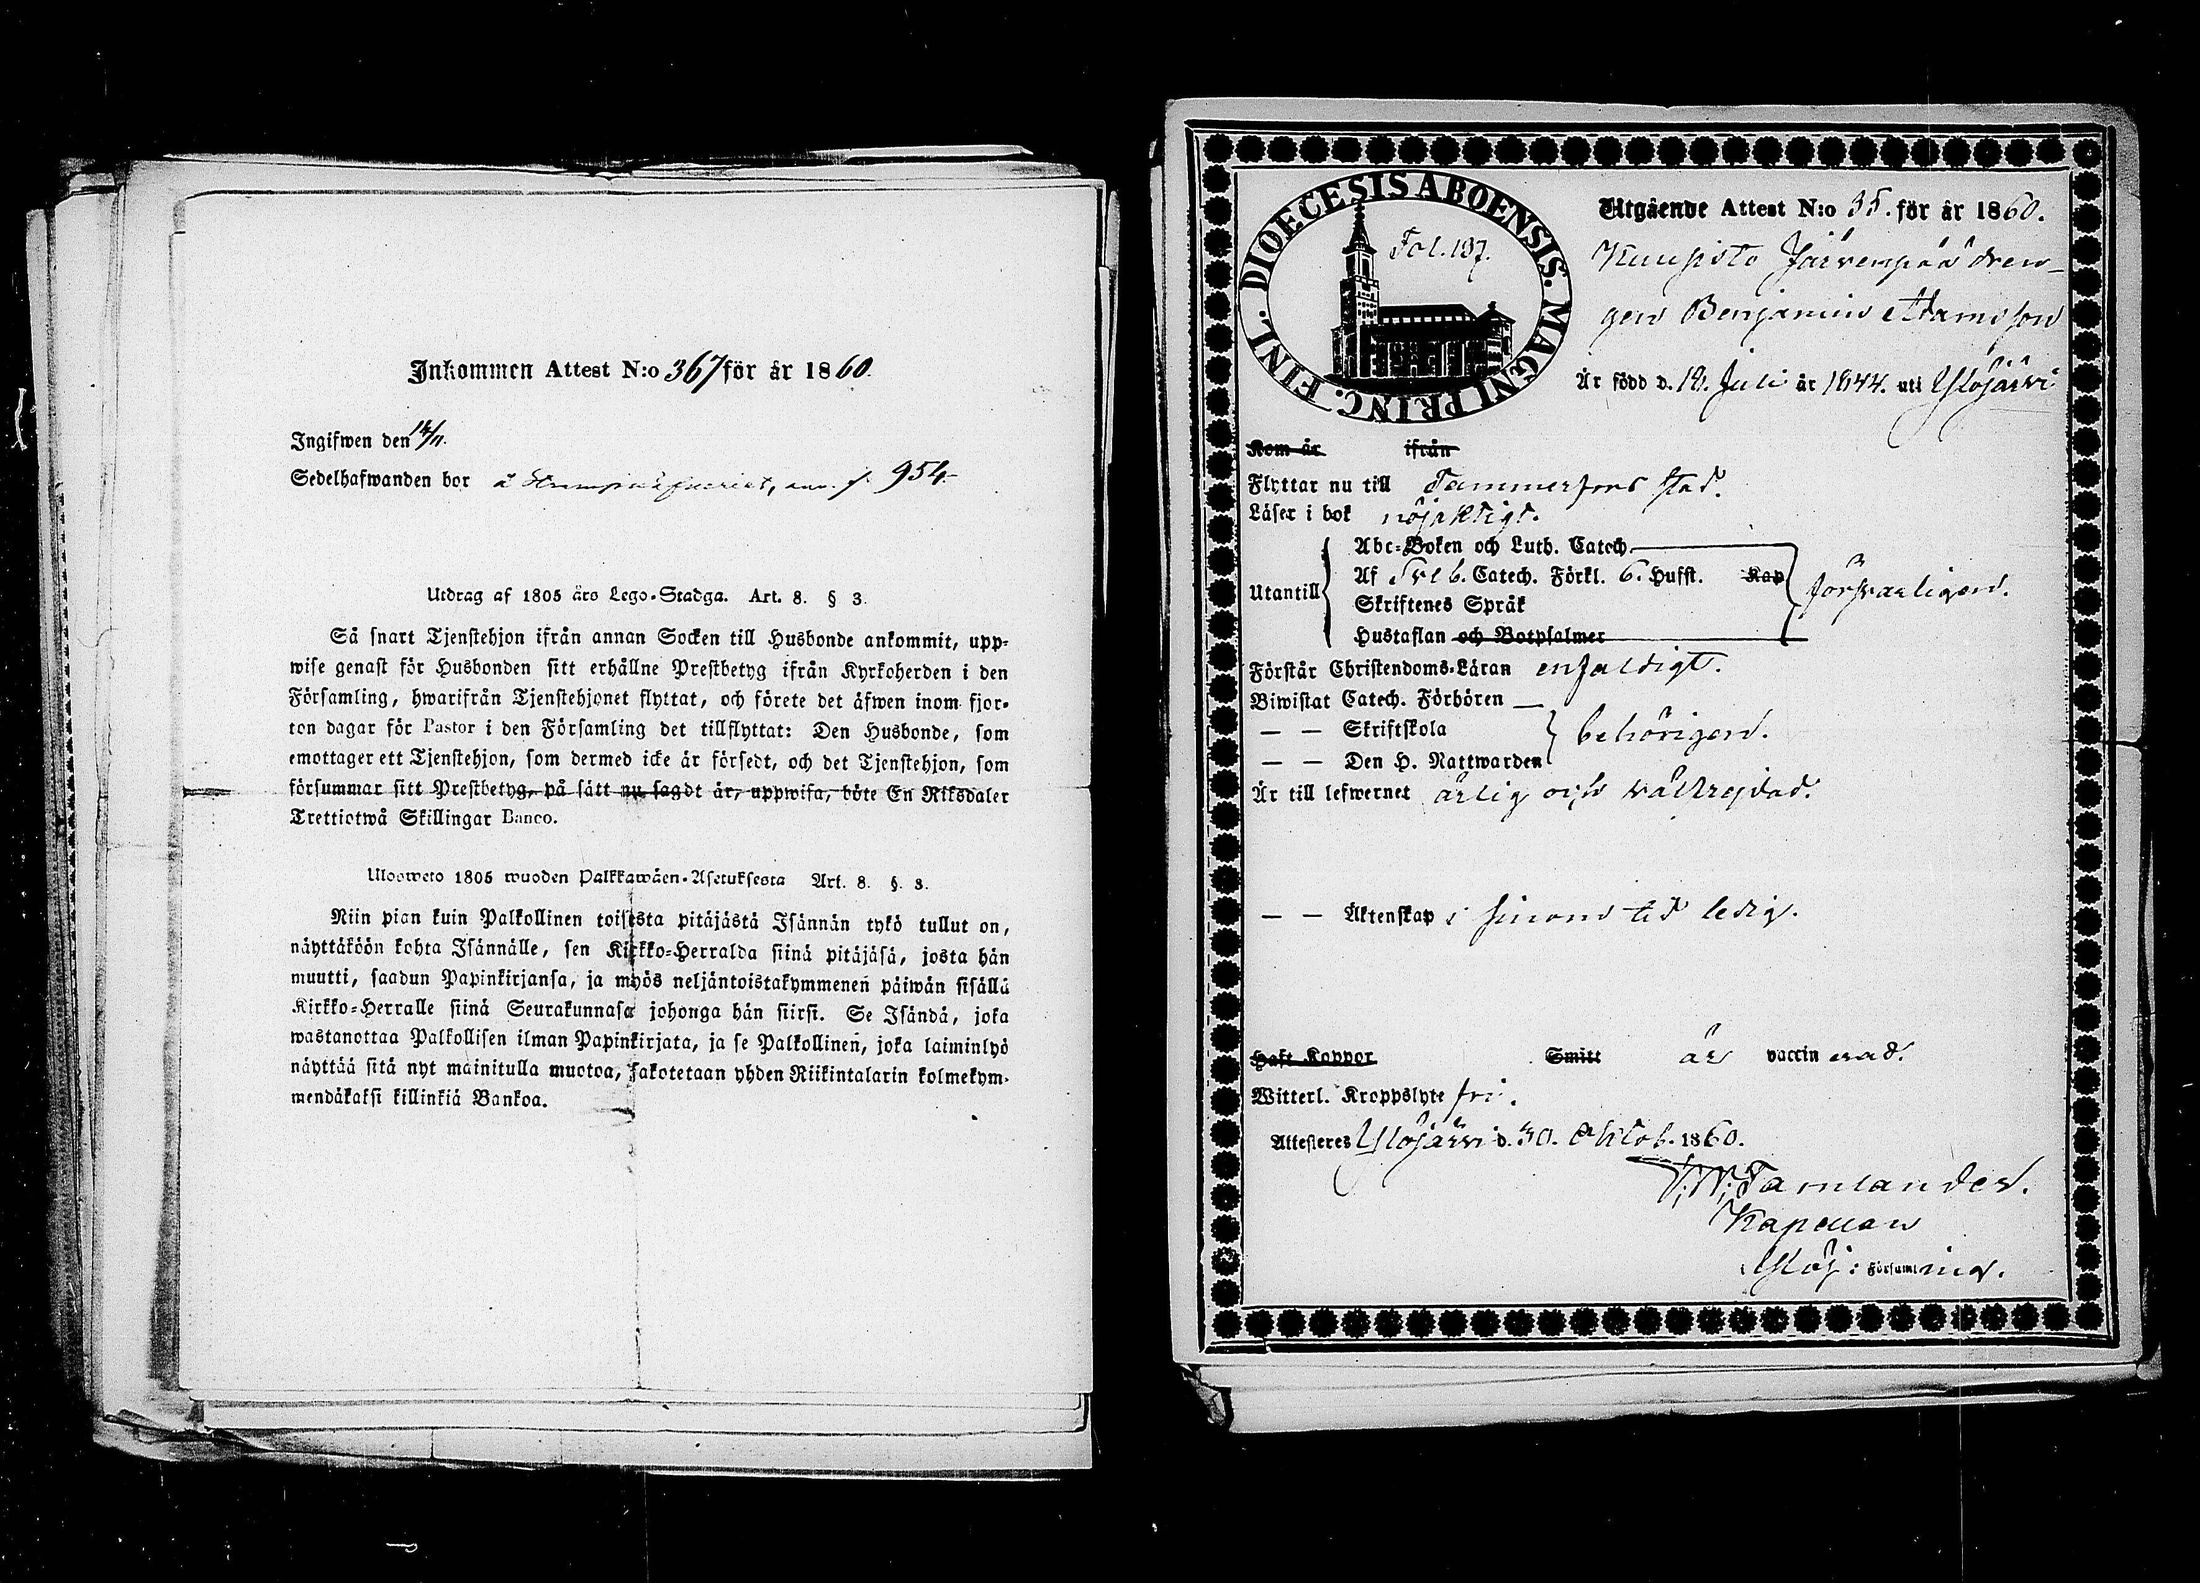 Inkommen Attest N:o 367 för år 1860.
Ingifwen den 14/11.
Sedelhafwanden bor å 954.
Utdrag af 1805 års Lego-Stadga. Art. 8. § 3.
Så snart Tjenstehjon ifrån annan Socken till Husbonde ankommit, upp-
wise genast för Husbonden sitt erhållne Prestbetyg ifrån Kyrkoherden i den
Församling, hwarifrån Tjenstehjonet flyttat, och förete det äfwen inom fjor-
ton dagar för Pastor i den Församling det tillflyttat: Den Husbonde, som
emottager ett Tjenstehjon, som dermed icke är försedt, och det Tjenstehjon, som
försummar sitt Prestbetyg, på sätt nu sagdt är, uppwisa, böte En Riksdaler
Trettiotwå Skillingar Banco.
Ulosweto 1805 wuoden Palkkawäen-Asetuksesta Art. 8. §. 3.
Niin pian kuin Palkollinen toisesta pitäjästä Isännän tykö tullut on,
näyttäköön kohta Isännälle, sen Kirkko-Herralda siinä pitäjäsä, josta hän
muutti, saadun Papinkirjansa, ja myös neljäntoistakymmenen päiwän sisällä
Kirkko-Herralle siinä Seurakunnasa johonga hän siirsi. Se Isändä, joka
wastanottaa Palkollisen ilman Papinkirjata, ja se Palkollinen, joka laiminlyö
näyttää sitä nyt mainitulla muotoa, sakotetaan yhden Riikintalarin kolmekym-
mendäkaksi killinkiä Bankoa.
DIOECESIS ABOENSIS. MAGNI PRINC. FINL.
Fol. 137.
Utgående Attest N:o 35. för år 1860.
Kuusisto Järvenpää dren-
gen Benjamin Adamsson
Är född d. 18. Juli år 1844. uti Ylöjärvi
Kom år ifrån
Flyttar nu till Tammerfors stad.
Läser i bok nöjaktigt.
Utantill
Abc-Boken och Luth. Catech.
Af Sveb. Catech. Förkl. 6. Hufst. Kap
Skriftenes Språk
Hustaflan och Botpsalmer
försvarligen.
Förstår Christendoms-Läran enfaldigt.
Biwistat Catech. Förhören
— — Skriftskola
— — Den H. Nattwarden
behörigen.
Är till lefwernet ärlig och välfrejdad.
— — Äktenskap i sinom tid ledig.
Haft Koppor Smitt är vaccinerad.
Witterl. Kroppslyte fri.
Attesteres Ylöjärvi d. 30. Oktob. 1860.
Tamlander.
Kapellan
Ylöj: Församlning.